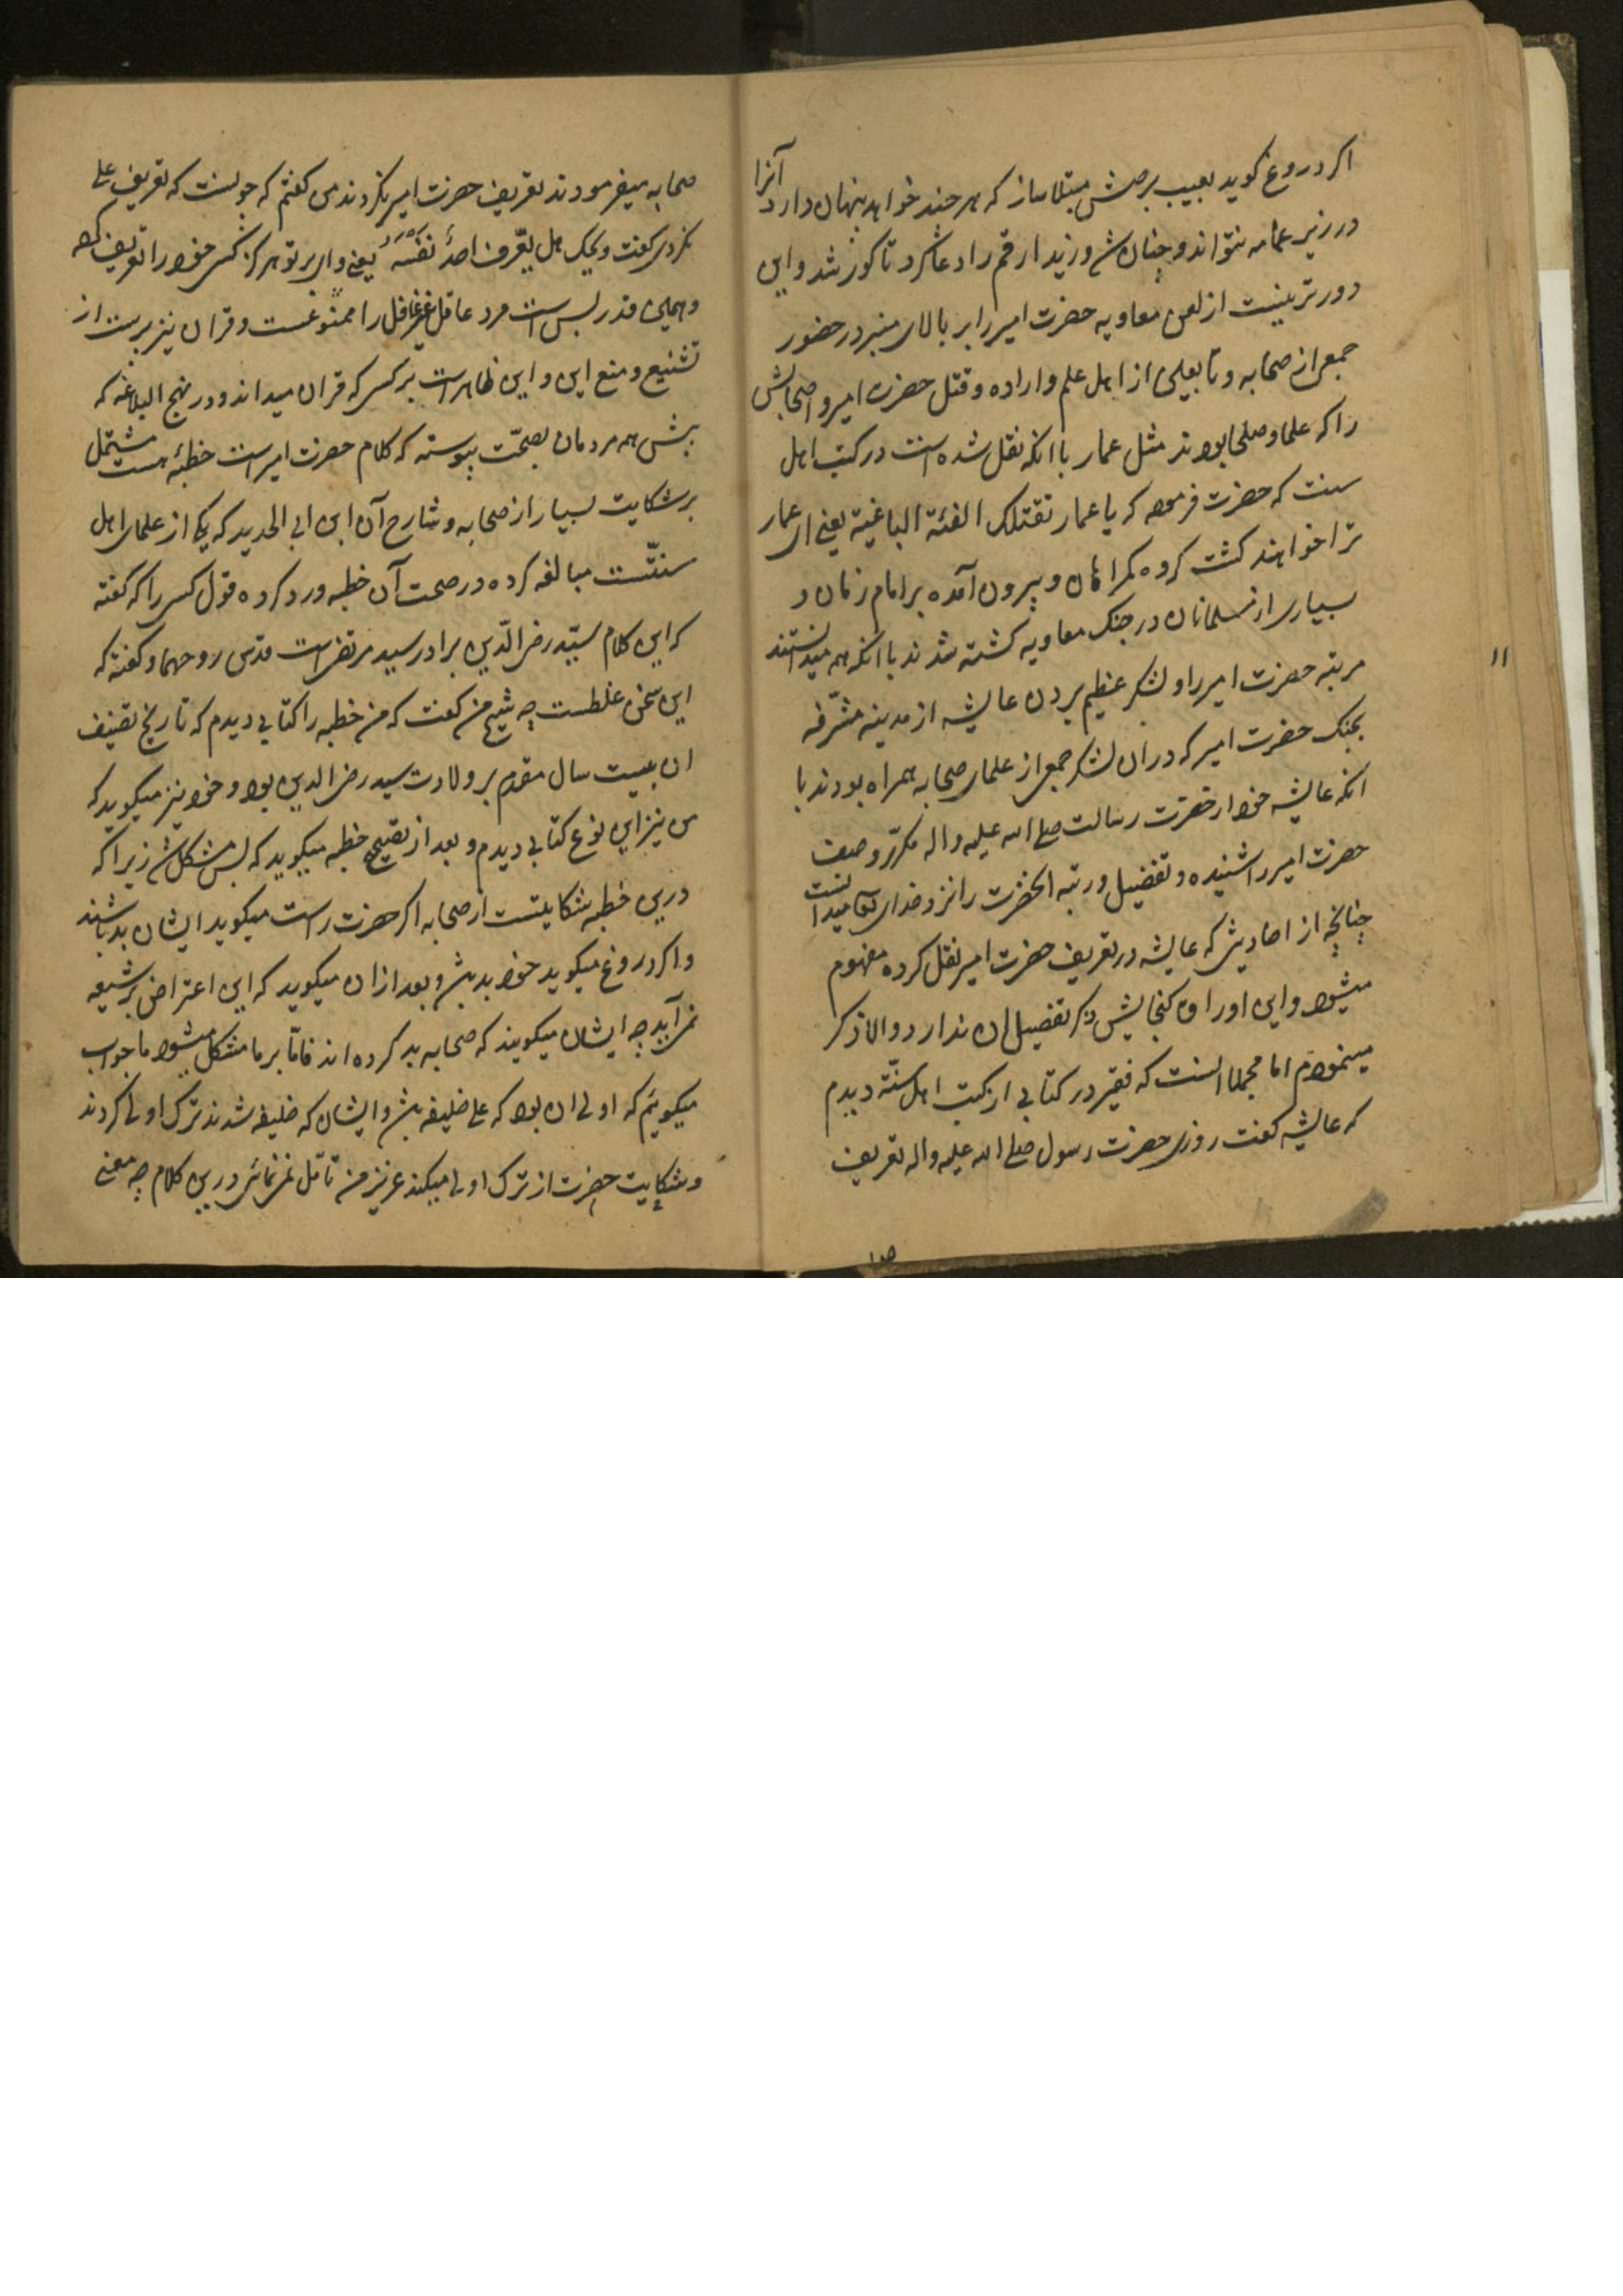 اکر دروغ کوید بعیب برصش مبتلا ساز که هر چند خواهد پنهان دارد آنرا
در زیر عمامه نتواند و چنان شد و زید ارقم را دعا کرد تا کور شد و این
دورتر نیست از لعن معاویه حضرت امیر را بر بالای منبر در حضور
جمعی از صحابه و تابعین از اهل علم و اراده و قتل حضرت امیر و اصحابش
را که علما و صلحا بودند مثل عمار با انکه نقل شده است در کتب اهل
سنت که حضرت فرموده که یا عمار تقتلک الفئة الباغیة یعنی ای عمار
ترا خواهند کشت کروه کمراهان و بیرون آمده بر امام زمان و
بسیاری از مسلمانان در جنک معاویه کشته شدند با انکه همه میدانستند
مرتبه حضرت امیر را و لشکر عظیم بردن عایشه از مدینه مشرّفه
بجنک حضرت امیر که در ان لشکر جمعی از علمای صحابه همراه بودند با
انکه عایشه خود از حضرت رسالت صلی الله علیه واله مکرّر وصف
حضرت امیر را شنیده و تفضیل و رتبه انحضرت را نزد خدای تعا میدانست
چنانچه از احادیثی که عایشه در تعریف حضرت امیر نقل کرده مفهوم
میشود و این اوراق کنجایش ذکر تفصیل ان ندارد والا ذکر
مینمودم اما مجملا انست که فقیر در کتابی از کتب اهل سنّة دیدم
که عایشه کفت روزی حضرت رسول صلی الله علیه واله تعریف
صحابه میفرمودند تعریف حضرت امیر نکردند من کفتم که چونست که تعریف علی
نکردی کفت ویحک هل یعّرف احدٌ نفسَه یعنی وای بر تو هرکز کسی خود را تعریف کرده
و همین قدر بس است مرد عاقل غیر غافل را ممنوعست و قران نیز پرست از
تشنیع و منع این و این ظاهر است بر کسی که قران میداند و در نهج البلاغه که
پیش همه مردمان بصحّت پیوسته که کلام حضرت امیر است خطبهٔ هست مشتمل
بر شکایت بسیار از صحابه و شارح آن ابن ابی الحدید که یکی از علمای اهل
سنّتست مبالغه کرده در صحت آن خطبه و رد کرده قول کسی را که کفته
که این کلام سیّد رضی الدّین برادر سید مرتضی است قدس روحهما و کفته که
این سخن غلطست چه شیخ من کفت که من خطبه را کتابی دیدم که تاریخ تصنیف
ان بیست سال مقدم بر ولادت سید رضی الدین بود و خود نیز میکوید که
من نیز این نوع کتابی دیدم و بعد از تصحیح خطبه میکوید که بس مشکل شد زیرا که
درین خطبه شکایتست از صحابه اکر حضرت راست میکوید ایشان بد باشند
و اکر دروغ میکوید خود بد باشد و بعد از ان میکوید که این اعتراض بر شیعه
نمی آید چه ایشان میکویند که صحابه بد کرده اند فامّا بر ما مشکل میشود ما جواب
میکوئیم که اولی ان بود که علی خلیفه باشد و ایشان که خلیفه شدند ترک اولی کردند
و شکایت حضرت از ترک اولی میکند عزیز من تأمّل نمی نمائی درین کلام چه معنی